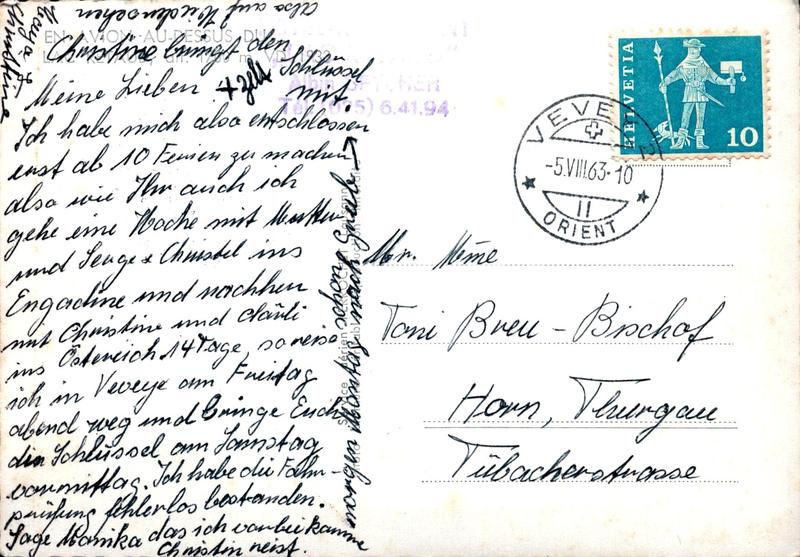 Also auf Wiedersehen
Christine
EN AVION AU-DESSUS DU
Christine bringt den
Schlüssel
mit
+ Zelt
Tél. (025) 6.41.94
Meine Lieben
Ich habe mich also entschlossen
erst ab 10 Ferien zu machen
also wie Ihr auch ich
gehe eine Woche mit Mutter
und Serge + Christel ins
Engadine und nachher
mit Christine und
ins Östereich 14 Tage, so reise
ich in Veveye am Freitag
abend weg und bringe Euch
die Schlüssel am Samstag
vormittag. Ich habe die Fahr-
prüfung fehlerlos bestanden.
Sage Monika das ich vorbeikomme
Christin reist.
morgen Montag nach
schöne Grüsse
HELVETIA
10
VEVEY
-5.VIII.63-10
II
ORIENT
Mr. Mme
Toni Breu - Bischof
Horn, Thurgau
Tübacherstrasse